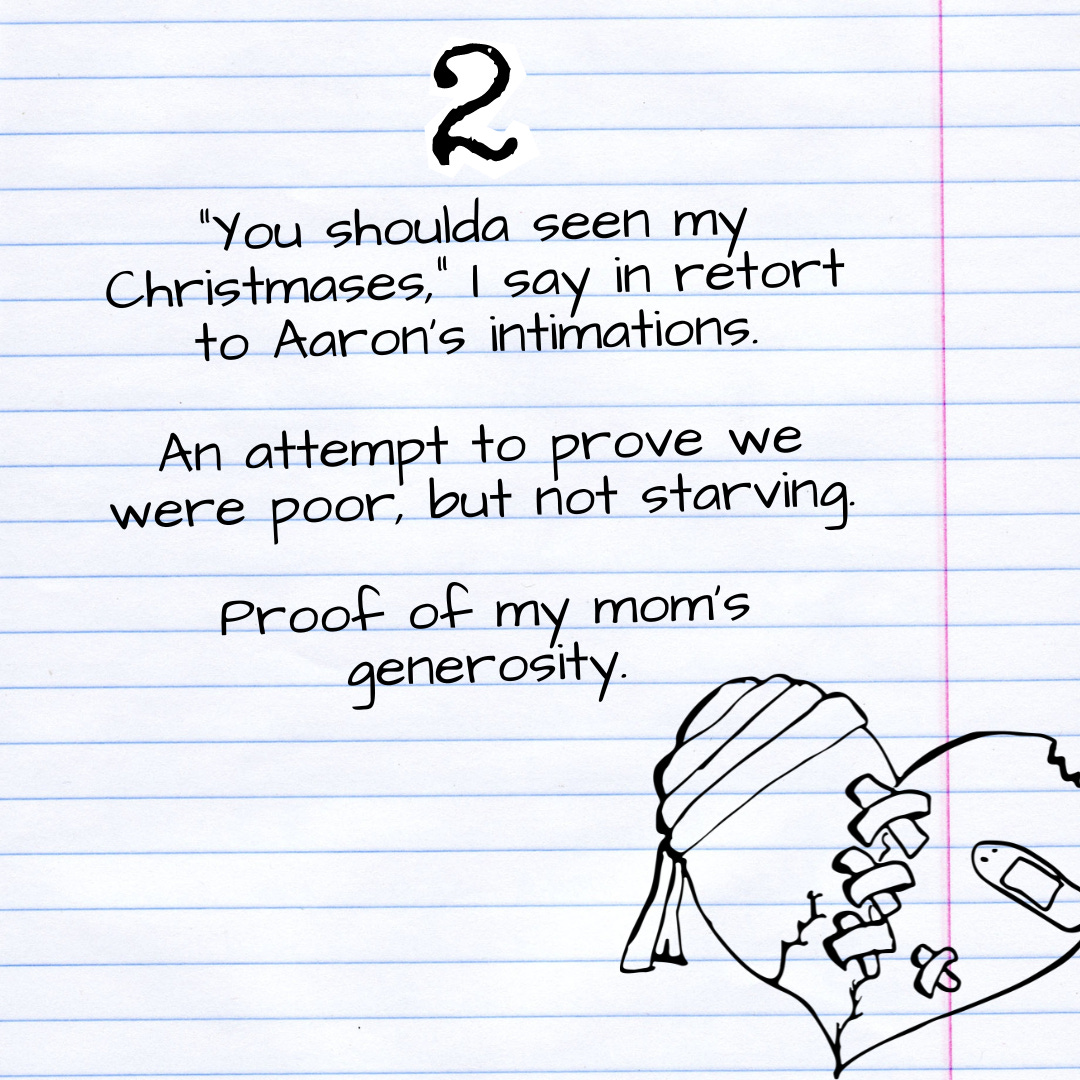 2
"You shoulda seen my
Christmases," I say in retort
to Aaron's intimations.
An attempt to prove we
were poor, but not starving.
Proof of my mom's
generosity.